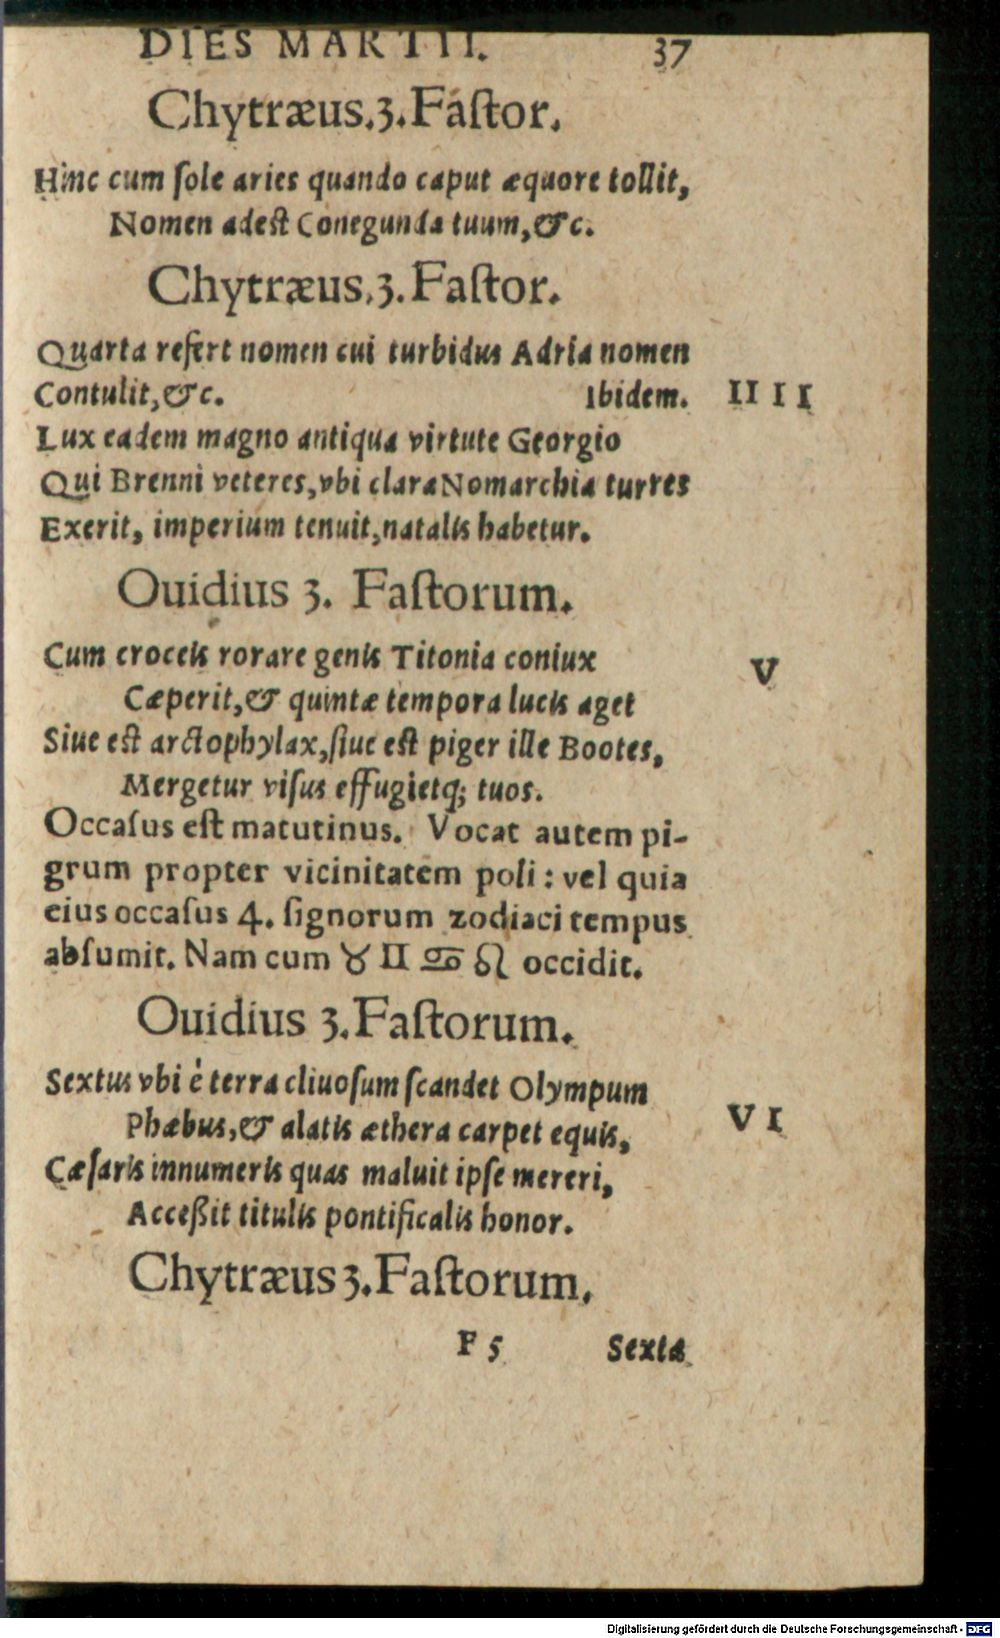 DIES MARTII. 37
Chytræus.3.Faſtor.
Hinc cum ſole aries quando caput æquore tollit,
Nomen adeſt Conegunda tuum,&c.
Chytræus.3.Faſtor.
Quarta refert nomen cui turbidus Adria nomen
Contulit,&c. Ibidem. IIII
Lux eadem magno antiqua virtute Georgio
Qui Brenni veteres,vbi clara Nomarchia turres
Exerit, imperium tenuit,natalis habetur.
Ouidius 3. Faſtorum.
Cum croceis rorare genis Titonia coniux V
Cæperit,& quintæ tempora lucis aget
Siue eſt arctophylax,ſiue eſt piger ille Bootes,
Mergetur viſus effugietq; tuos.
Occaſus eſt matutinus. Vocat autem pi-
grum propter vicinitatem poli : vel quia
eius occaſus 4. ſignorum zodiaci tempus
abſumit. Nam cum ♉ ♊ ♋ ♌ occidit.
Ouidius 3.Faſtorum.
Sextus vbi è terra cliuoſum ſcandet Olympum
Phæbus,& alatis æthera carpet equis, VI
Cæſaris innumeris quas maluit ipſe mereri,
Acceßit titulis pontificalis honor.
Chytræus 3.Faſtorum.
F 5 Sextæ
Digitalisierung gefördert durch die Deutsche Forschungsgemeinschaft - DFG